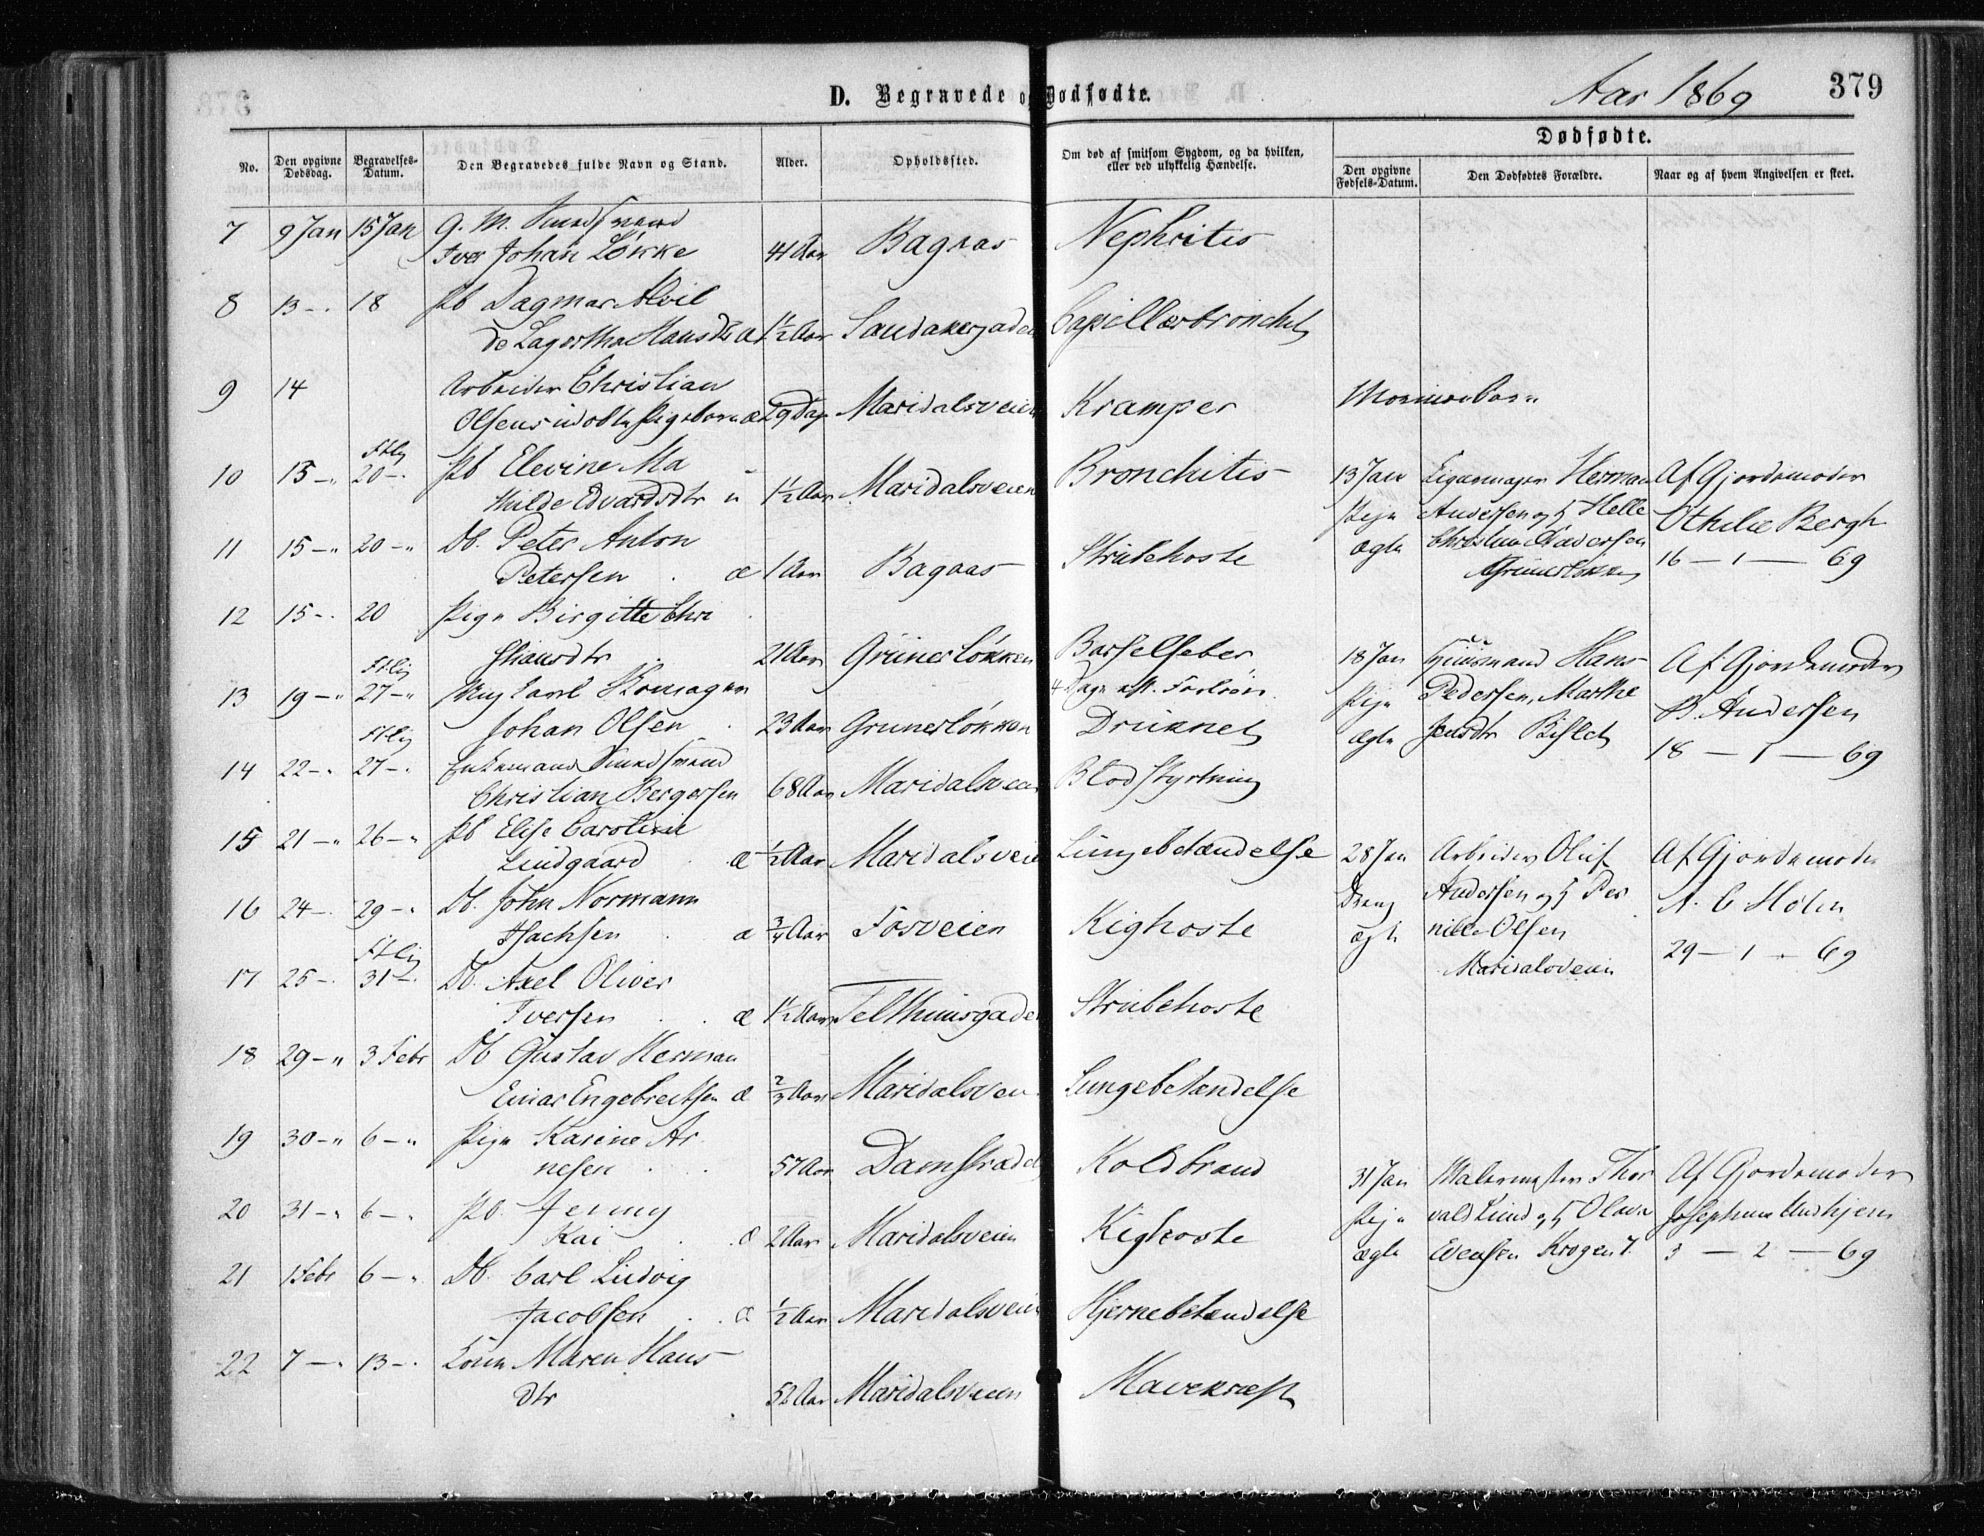 D. Begravede og Dødfødte.
Aar 1869
379
No.
Den opgivne Dødsdag.
Begravelses-Datum.
Den Begravedes fulde Navn og Stand.
Alder.
Opholdssted.
Om død af smitsom Sygdom, og da hvilken, eller ved ulykkelig Hændelse.
Dødfødte.
Den opgivne Fødsels-Datum.
Den Dødfødtes Forældre.
Naar og af hvem Angivelsen er skeet.
7 9 Jan 15 Jan G. M.
Iver Johan Løkke 41 Aar Bagaas Nephritis
8 13 -. 18 Pb Dagmar Alvil
de Lagertha Hansdtr u 1½ Aar Sandakergaden Capillærbronchit
9 14 Arbeider Christian
Olsens udøbte Pigebarn æ 29 Dag Maridalsveien Kramper
10 15 -" 20 -. Pb Elevine Ma
thilde Edvardsdtr u 1½ Aar Maridalsveien Bronchitis
11 15 -" 20 -" Db. Peter Anton
Petersen . æ 1 Aar Bagaas Strubehoste
12 15 -. 20 Pige Birgitte Chri
stiansdtr 21 Aar Grünerløkken Barselfeber
4 Dage
13 19 -" 27 -"
Johan Olsen 23 Aar Grunerløkken Druknet
14 22 -. 27 -. Enkemand
Christian Bergersen 68 Aar Maridalsveien Blodstyrtning
15 21 -" 26 -" Pb Elise Caroline
Lindgaard . æ ½ Aar Maridalsveien Lungebetændelse
16 24 -. 29 -" Db. John Normann
Isachsen . æ ¾ Aar Fosveien Kighoste
17 25 -. 31 -. Db. Axel Oliver
Iversen . . æ 1½ Aar Telthuusgaden Strubehoste
18 29 -" 3 Febr Db Gustav Herman
Einar Engebretsen æ Aar Maridalsveien Lungebetændelse
19 30 -" 6 -" Pige Karine Ar
nesen . . 57 Aar Damstrædet Koldbrand
20 31 -" 6 -. Pb. Jenny
Kai . . æ 2 Aar Maridalsveien Kighoste
21 1 Febr 6 -. Db. Carl Ludvig
Jacobsen . . æ ½ Aar Maridalsveien Hjernebetændelse
22 7 -. 13 -. Maren Hans
dtr 52 Aar Maridalsveien Mavekræft
13 Jan Herman Af Gjordemoder
Pige Andersen og H Helle Othilie Bergh
ægte Christine
Grünerløkken 16 - 1 - 69
18 Jan Huusmand Hans Af Gjordemoder
Pige Pedersen, Marthe B. Andersen
ægte Jensdtr Bislet 18 - 1 - 69
28 Jan Arbeider Oluf Af Gjordemoder
Dreng Andersen og H Per A. C Holm
ægte nille Olsen
Maridalsveien 29 - 1 - 69
31 Jan Malermester Thor Af Gjordemoder
Pige vald Lund og H Olava Josephine
ægte Evensen Krogen 7. 3 - 2 - 69